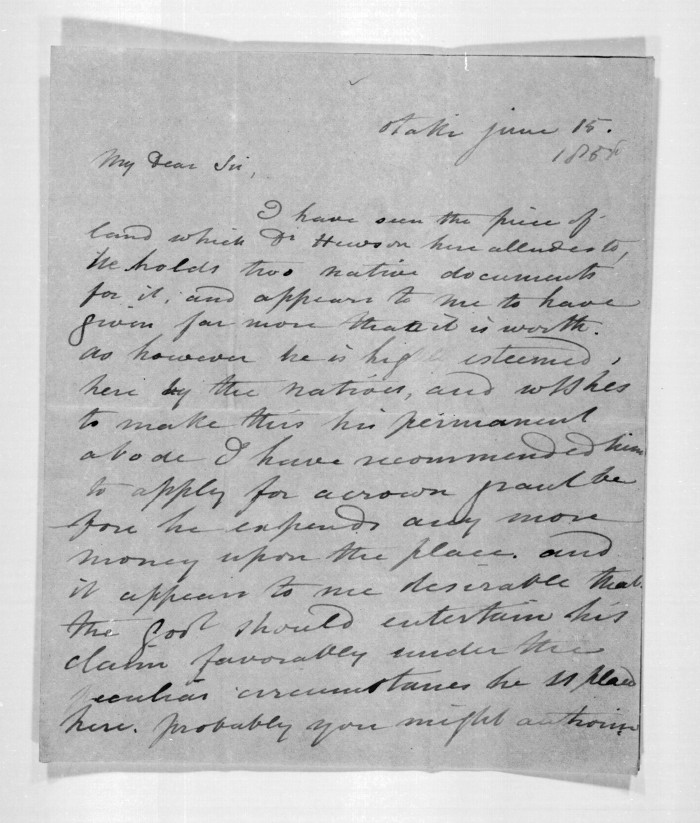 Otaki june 15.
185
My Dear Sir,
I have seen the piece of
land which Dr Hewson here alludes to,
he holds two native documents
for it, and appears to me to have
given far more than it is worth.
as however he is highly esteemed,
here by the natives, and wishes
to make this his permanent
abode I have recommended him
to apply for a crown grant be
fore he expends any more
money upon the place. and
it appears to me desirable that
the Govt should entertain his
claim favorably under the
peculiar circumstances he is placed
here. probably you might authorise